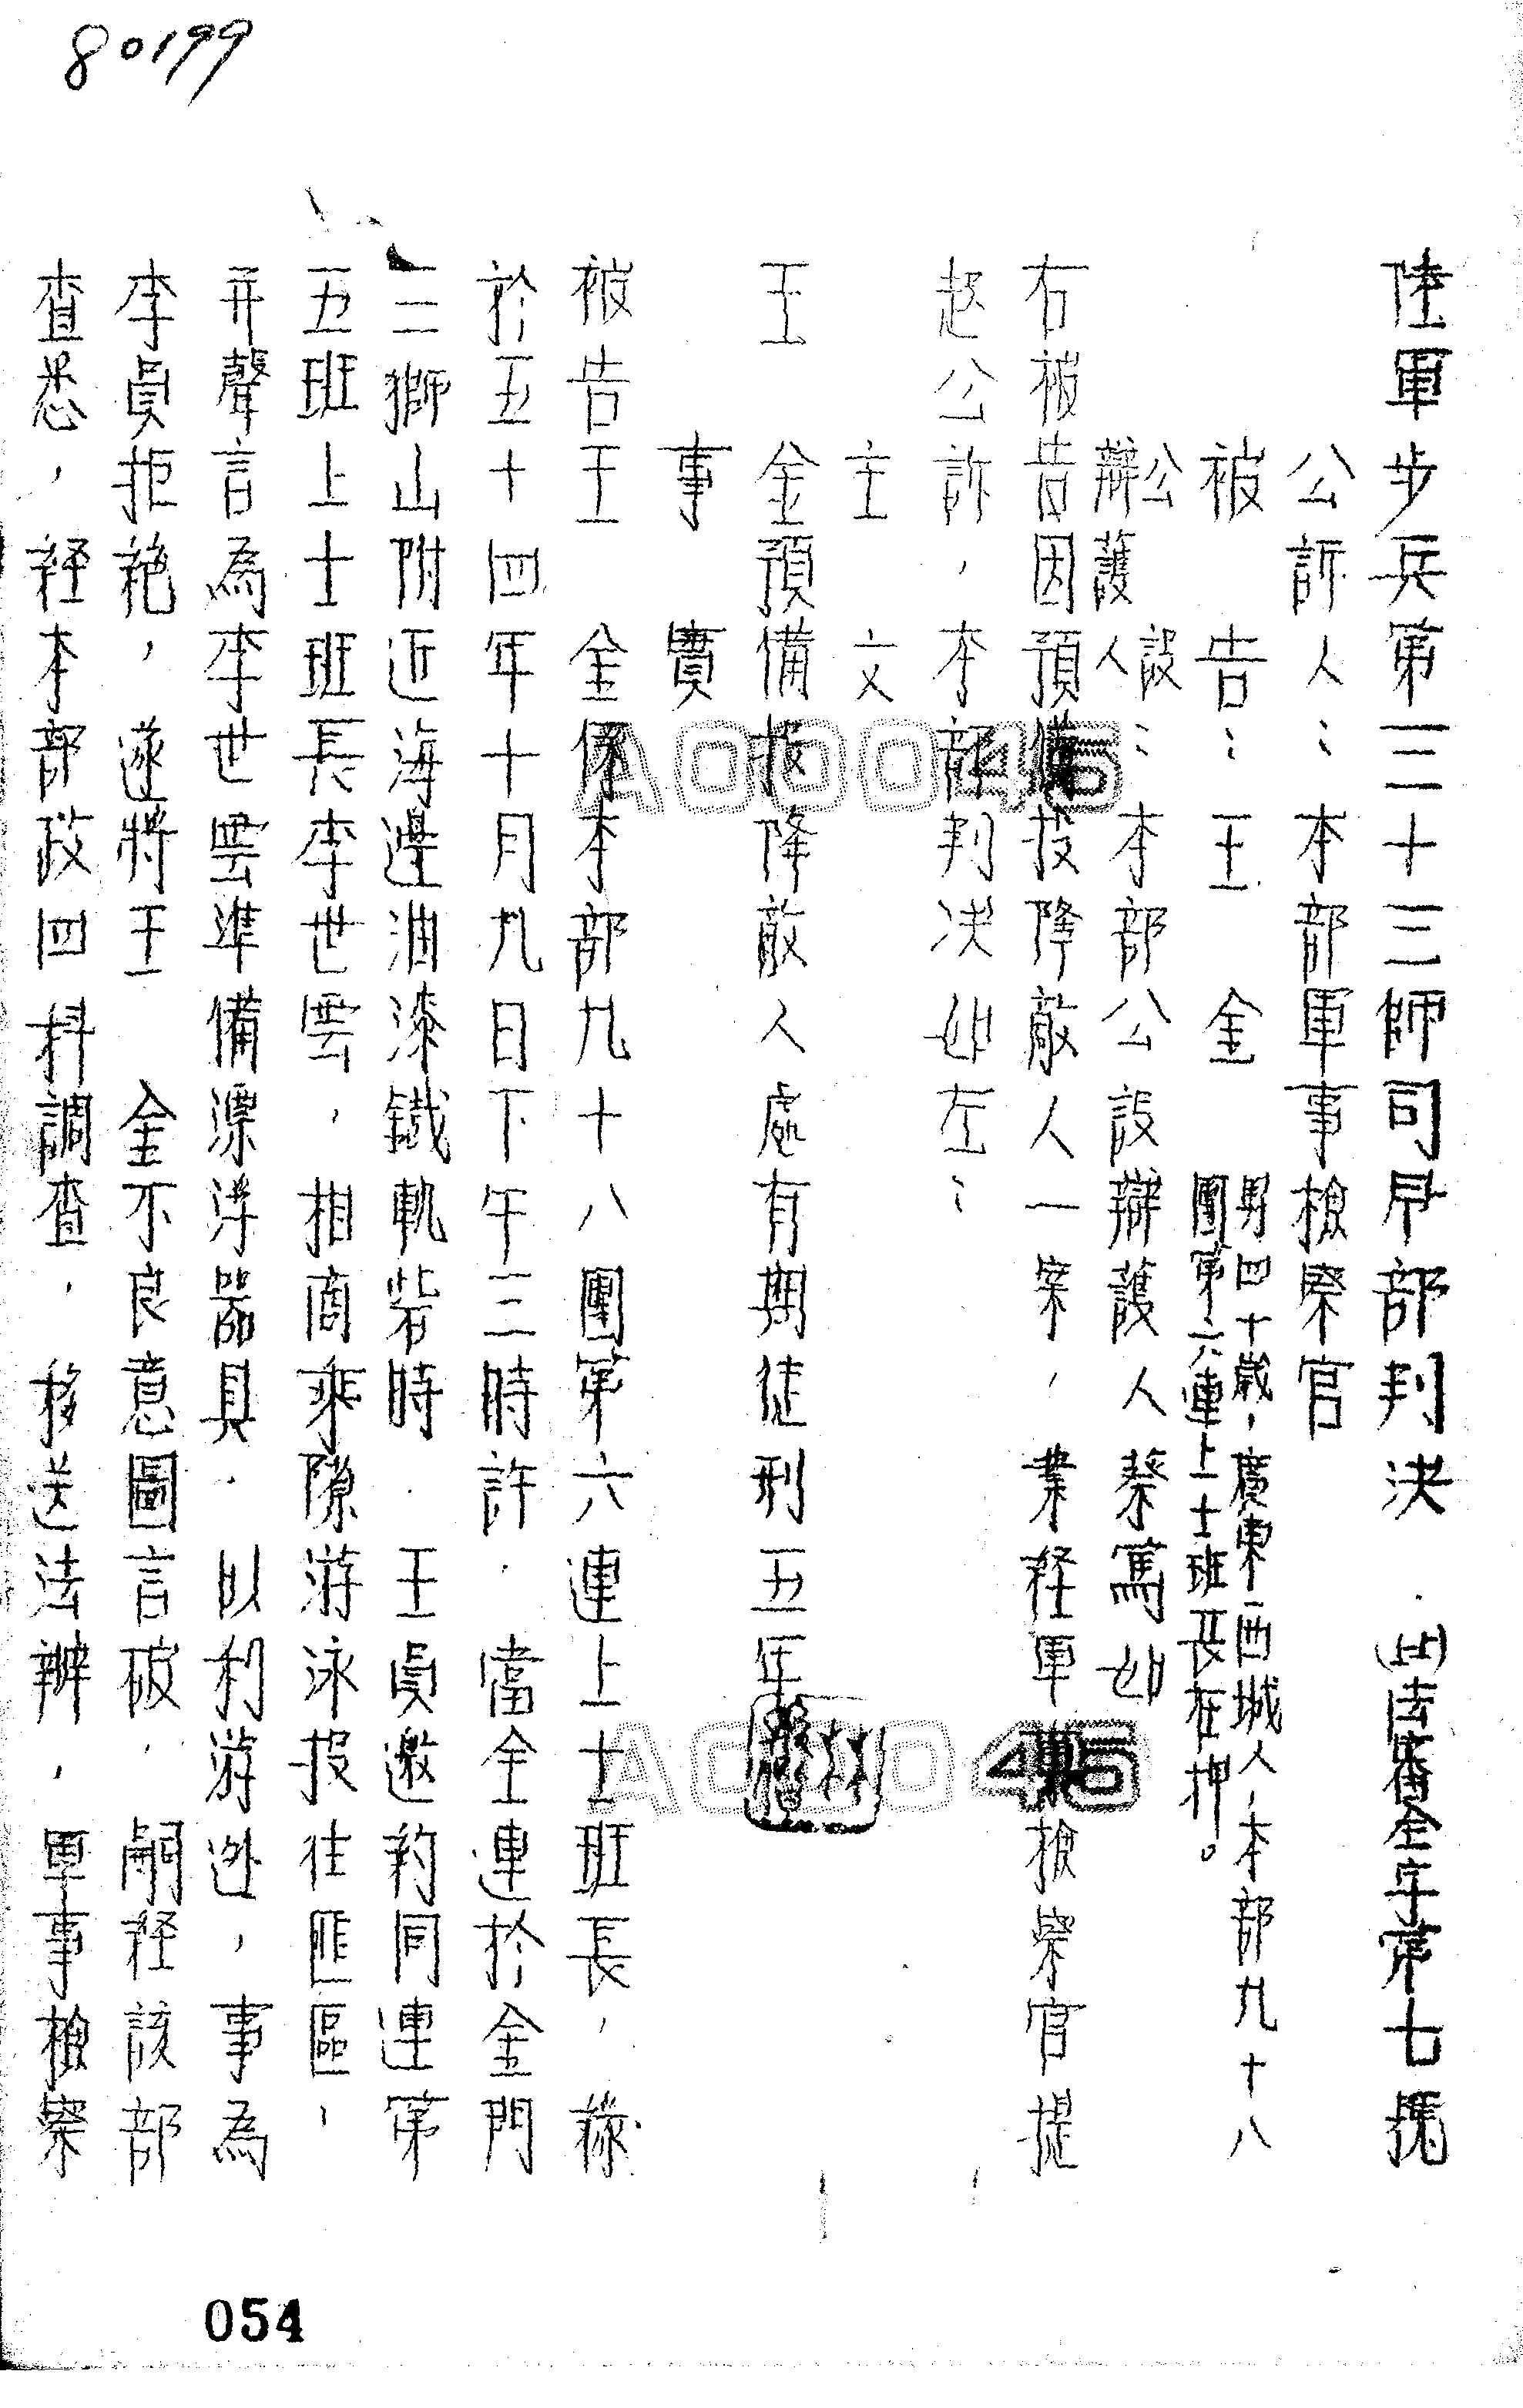 80199
陸軍步兵第三十三師司令部判決．(55)法審全字第七號
公訴人：本部軍事檢察官
被告：王　金　男，四十歲，廣東西城人，本部九十八
團第六連上士班長在押。
公設辯護人：本部公設辯護人蔡篤如
右被告因預備投降敵人一案，業經軍事檢察官提
起公訴，本部判決如左：
主文
王　金預備投降敵人處有期徒刑五年
事實
被告王　金係本部九十八團第六連上士班長，緣
於五十四年十月九日下午三時許．當全連於金門
三獅山附近海邊油漆鐵軌砦時．王員邀約同連第
五班上士班長李世雲，相商乘隙游泳投往匪區，
并聲言為李世雲準備漂浮器具．以利游逃，事為
李員拒絕，遂將王　金不良意圖言破．嗣經該部
查悉，經本部政四科調查，移送法辦，軍事檢察
A00045
A00045
054